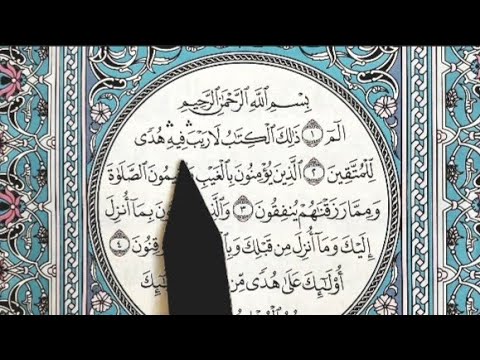 بِسْمِ ٱللَّهِ ٱلرَّحْمَٰنِ ٱلرَّحِيمِ
الٓمٓ ١ ذَٰلِكَ ٱلْكِتَٰبُ لَا رَيْبَ ۛ فِيهِ ۛ هُدًى
لِّلْمُتَّقِينَ ٢ ٱلَّذِينَ يُؤْمِنُونَ بِٱلْغَيْبِ ٱلصَّلَوٰةَ
وَمِمَّا رَزَقْنَٰهُمْ يُنفِقُونَ ٣ بِمَآ أُنزِلَ
إِلَيْكَ وَمَآ أُنزِلَ مِن قَبْلِكَ ٤
أُو۟لَٰٓئِكَ عَلَىٰ هُدًى